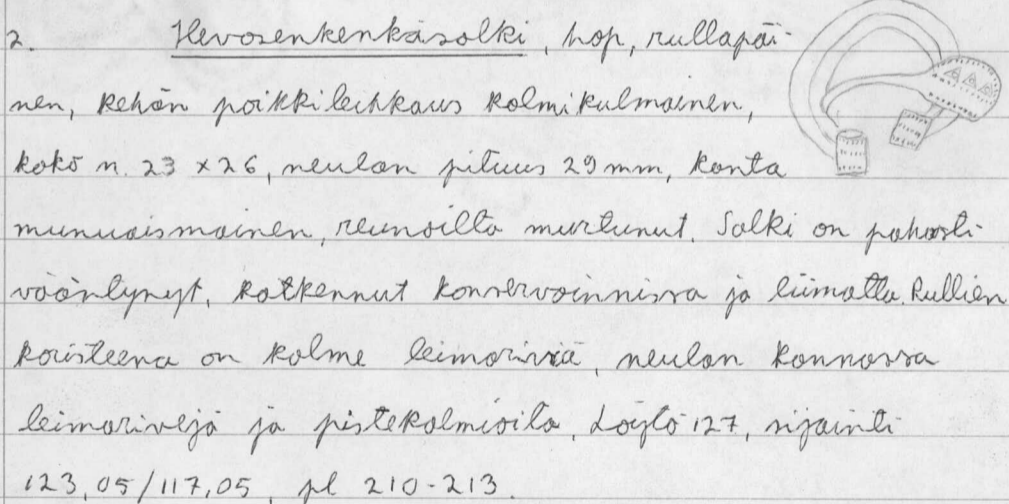 2. Hevosenkenkäsolki, hop, rullapäi-
nen, kehän poikkileikkaus kolmikulmainen,
koko n. 23 x 26, neulan pituus 29 mm, kanta
munuaismainen, reunoilta murtunut. Solki on pahasti
vääntynyt, katkennut konservoinnissa ja liimattu. Rullien
koristeena on kolme leimariviä, neulan kannassa
leimarivejä ja pistekolmioita. Löytö 127, sijainti
123,05/117,05, pl 210-213.